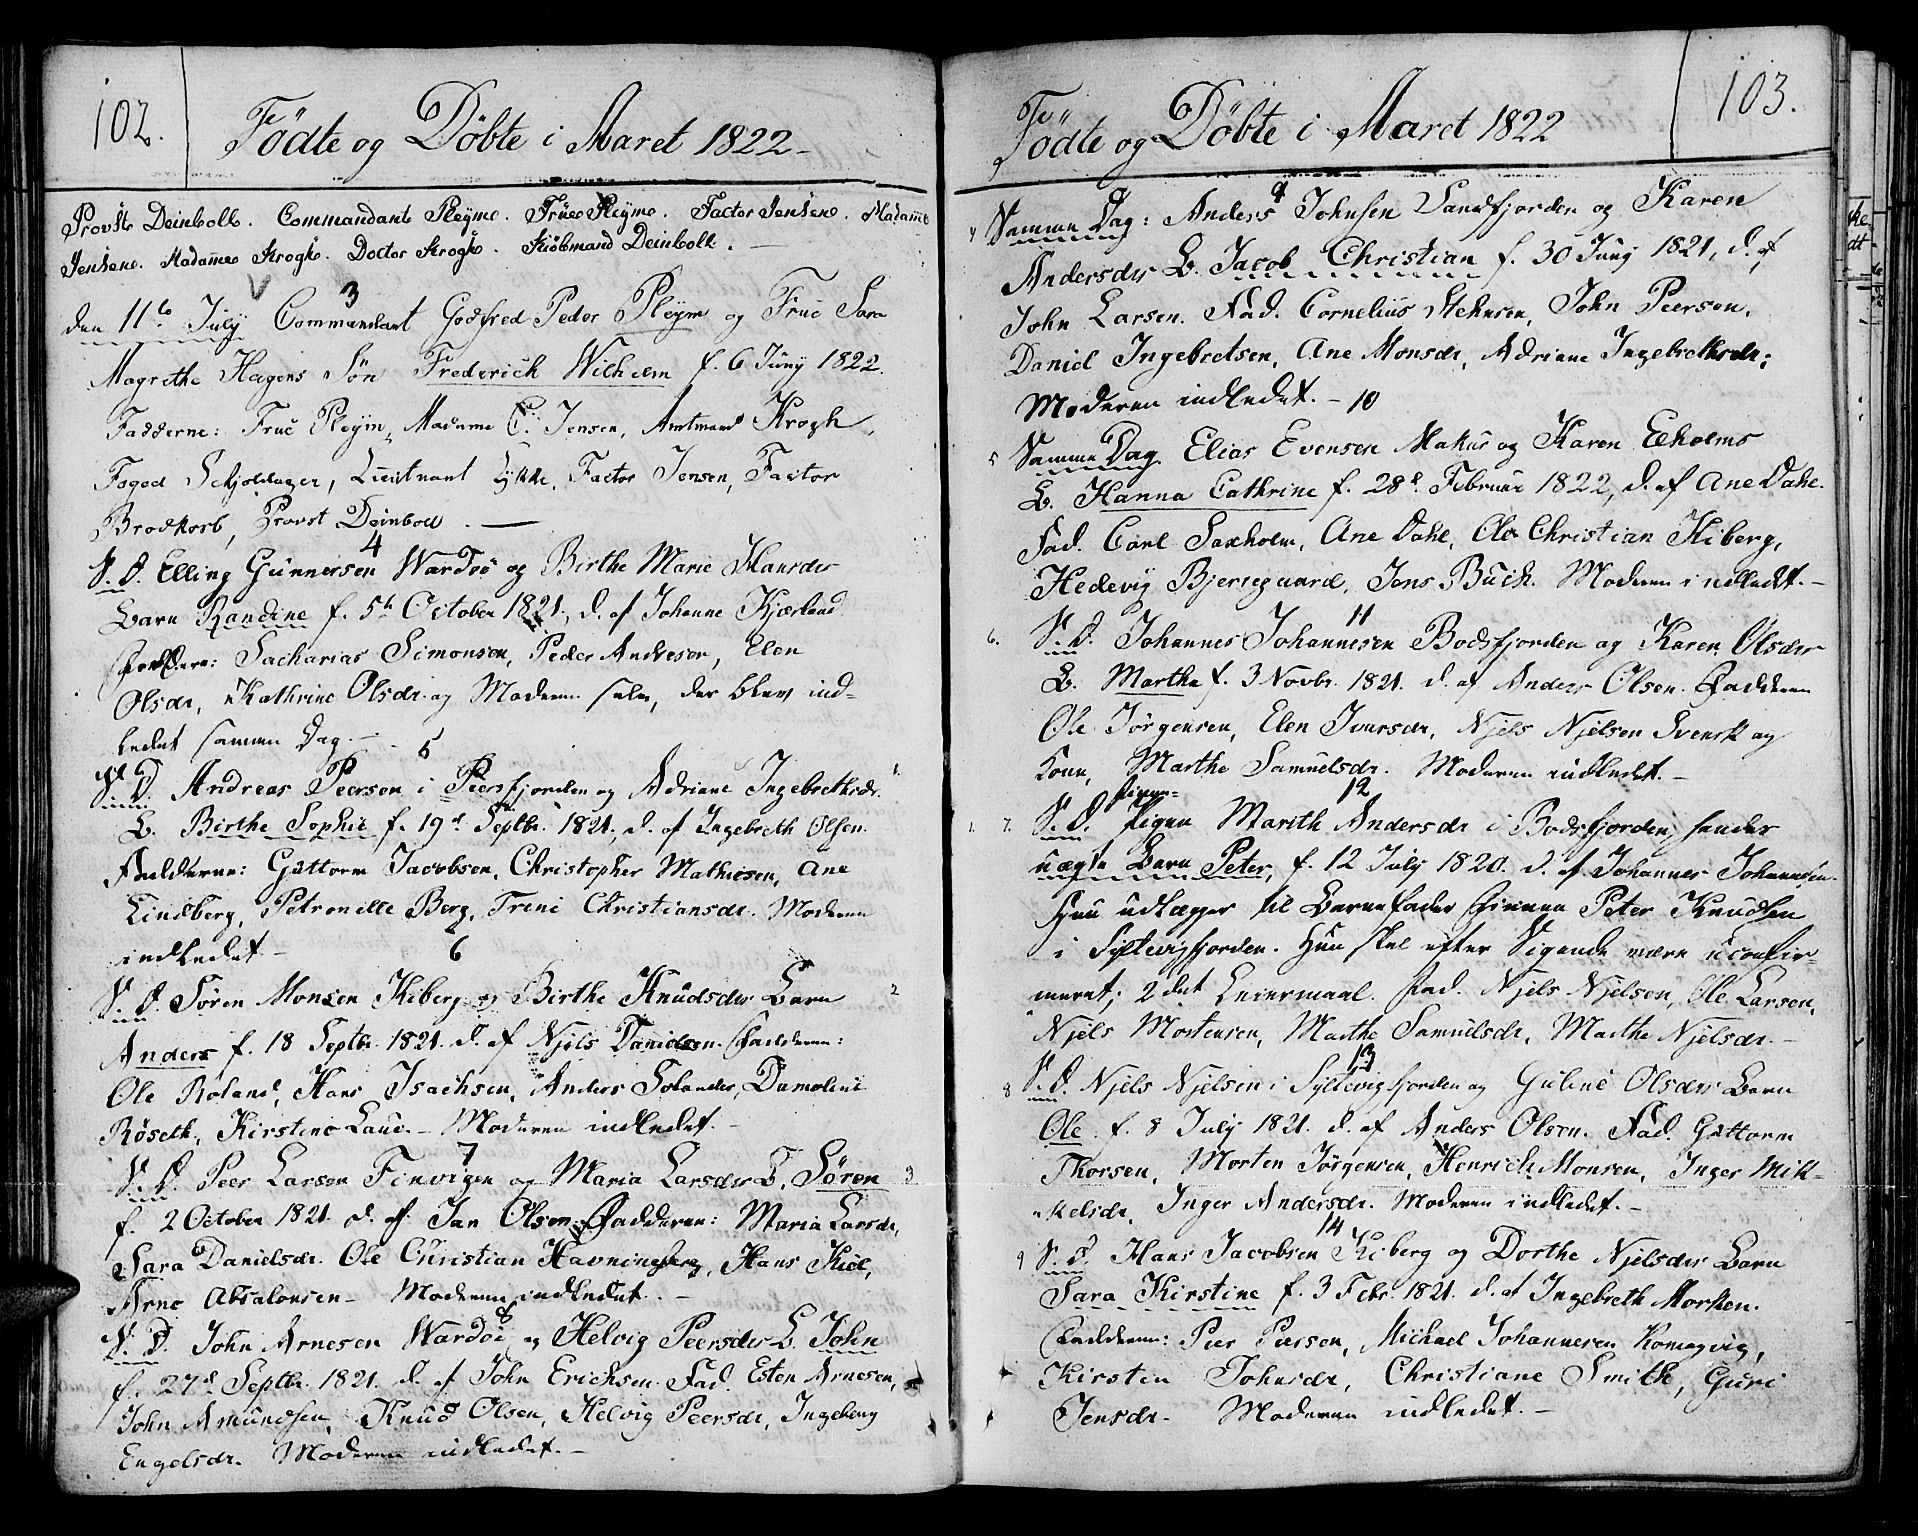 102.
Födte og Döbte i Aaret 1822 -
Provst Deinboll. Commandant Pleym. Frue Pleym. Factor Jensen. Madame
Jensen. Madame Krogh. Doctor Krogh. Kiöbmand Deinboll. -
3
den 11te July Commandant Godfred Peder Pleym og Frue Sara
Magrethe Hagens Søn Frederich Wilhelm f. 6 Juny 1822.
Fadderne: Frue Pleym, Madame C. Jensen, Amtmand Krogh,
Foged Schjoldager, Lieutnant Lykke, Factor Jensen, Factor
Brodkorb, Provst Deinboll. -
4
S. D. Elling Gunnersen Wardöe og Birthe Marie Hansdr
Barn Randine f. 5te October 1821, d. af Johanne Kjærland
Faddere: Sacharias Simonsen, Peder Andresen, Elen
Olsdr, Kathrine Olsdr. og Moderen selv, der blev ind-
ledet samme Dag. -
5
S. D. Andreas Peersen i Peersfjorden og Adriane Ingebrethsdr. 1.
B. Birthe Sophie f. 19d Septbr. 1821, d. af Ingebreth Olsen.
Fadderne: Guttorm Jacobsen, Christopher Mathiesen, Ane
Lindberg, Petronelle Berg, Trene Christiansdr. Moderen
indledet -
6
S. D. Sören Monsen Kiberg og Birthe Knudsdr Barn 2
Anders f. 18 Septbr. 1821. d. af Njels Danielsen. Fadderne:
Ole Roland, Hans Isachsen, Anders Solander, Damoline
Röseth, Kirstine Laue. - Moderen indledet. -
7
S. D. Peer Larsen Finvigen og Maria Larsdr B. Sören 3
f. 2 October 1821. d. af Jan Olsen. Fadderne: Maria Larsdr,
Sara Danielsdr. Ole Christian Havningberg, Hans Kiel,
Arne Absalonsen - Moderen indledet. -
8
S. D. John Arnesen Wardöe og Helvig Peersdr B. John
f. 27d Septbr. 1821. d. af John Erichsen. Fad. Esten Arnesen,
John Amundsen, Knud Olsen, Helvig Peersdr, Ingeborg
Engelsdr. Moderen indledet. -
103.
Födte og Döbte i Aaret 1822
9
4 Samme Dag: Anders Johnsen Sandfjorden og Karen
Andersdr B. Jacob Christian f. 30 Juny 1821, d. af
John Larsen. Fad. Cornelius Stehnsen, John Peersen,
Daniel Ingebretsen, Ane Monsdr, Adriane Ingebrethsdr;
Moderen indledet. - 10
5 Samme Dag Elias Evensen Makur og Karen Ekholms
B. Hanna Cathrine f. 28d Februar 1822, d. af Ane Dahl.
Fad. Carl Saxholm, Ane Dahl, Ole Christian Kiberg,
Hedevig Bjerregaard, Jens Buck. Moderen indledet. -
11
6. S. D. Johannes Johannesen Bodsfjorden og Karen Olsdr
B. Marthe f. 3 Novbr. 1821. d. af Anders Olsen. Fadderne
Ole Jörgensen, Elen Ivarsdr, Njels Njelsen Svensk og
Kone, Marthe Samuelsdr. Moderen indledet. -
Finne= 12
1. 7. S. D. Pigen Marith Andersdr i Bodsfjorden, hendes
uægte Barn Peter, f. 12 July 1820. d. af Johannes Johannesen.
Hun udlægger til Barnefader Finnen Peter Knudsen
i Syltevigfjorden. Hun skal efter Sigende være uconfir-
meret; 2det Leiermaal. Fad. Njels Njelsen, Ole Larsen,
Njels Mortensen, Marthe Samuelsdr, Marthe Njelsdr. -
13
8 S. D. Njels Njelsen i Syltevigfjorden og Guline Olsdr Barn
Ole f. 8 July 1821. d. af Anders Olsen. Fad. Guttorm
Thorsen, Morten Jörgensen, Henrich Monsen, Inger Mik-
kelsdr, Inger Andersdr. Moderen indledet. -
14
9 S. D. Hans Jacobsen Kiberg og Dorthe Njelsdr Barn
Sara Kirstine f. 3 Febr. 1821. d. af Ingebreth Morsken.
Fadderne: Peer Pærson, Michael Johannesen Komagvig,
Kirsten Johnsdr, Christiane Smith, Guri
Jensdr. - Moderen indledet. -